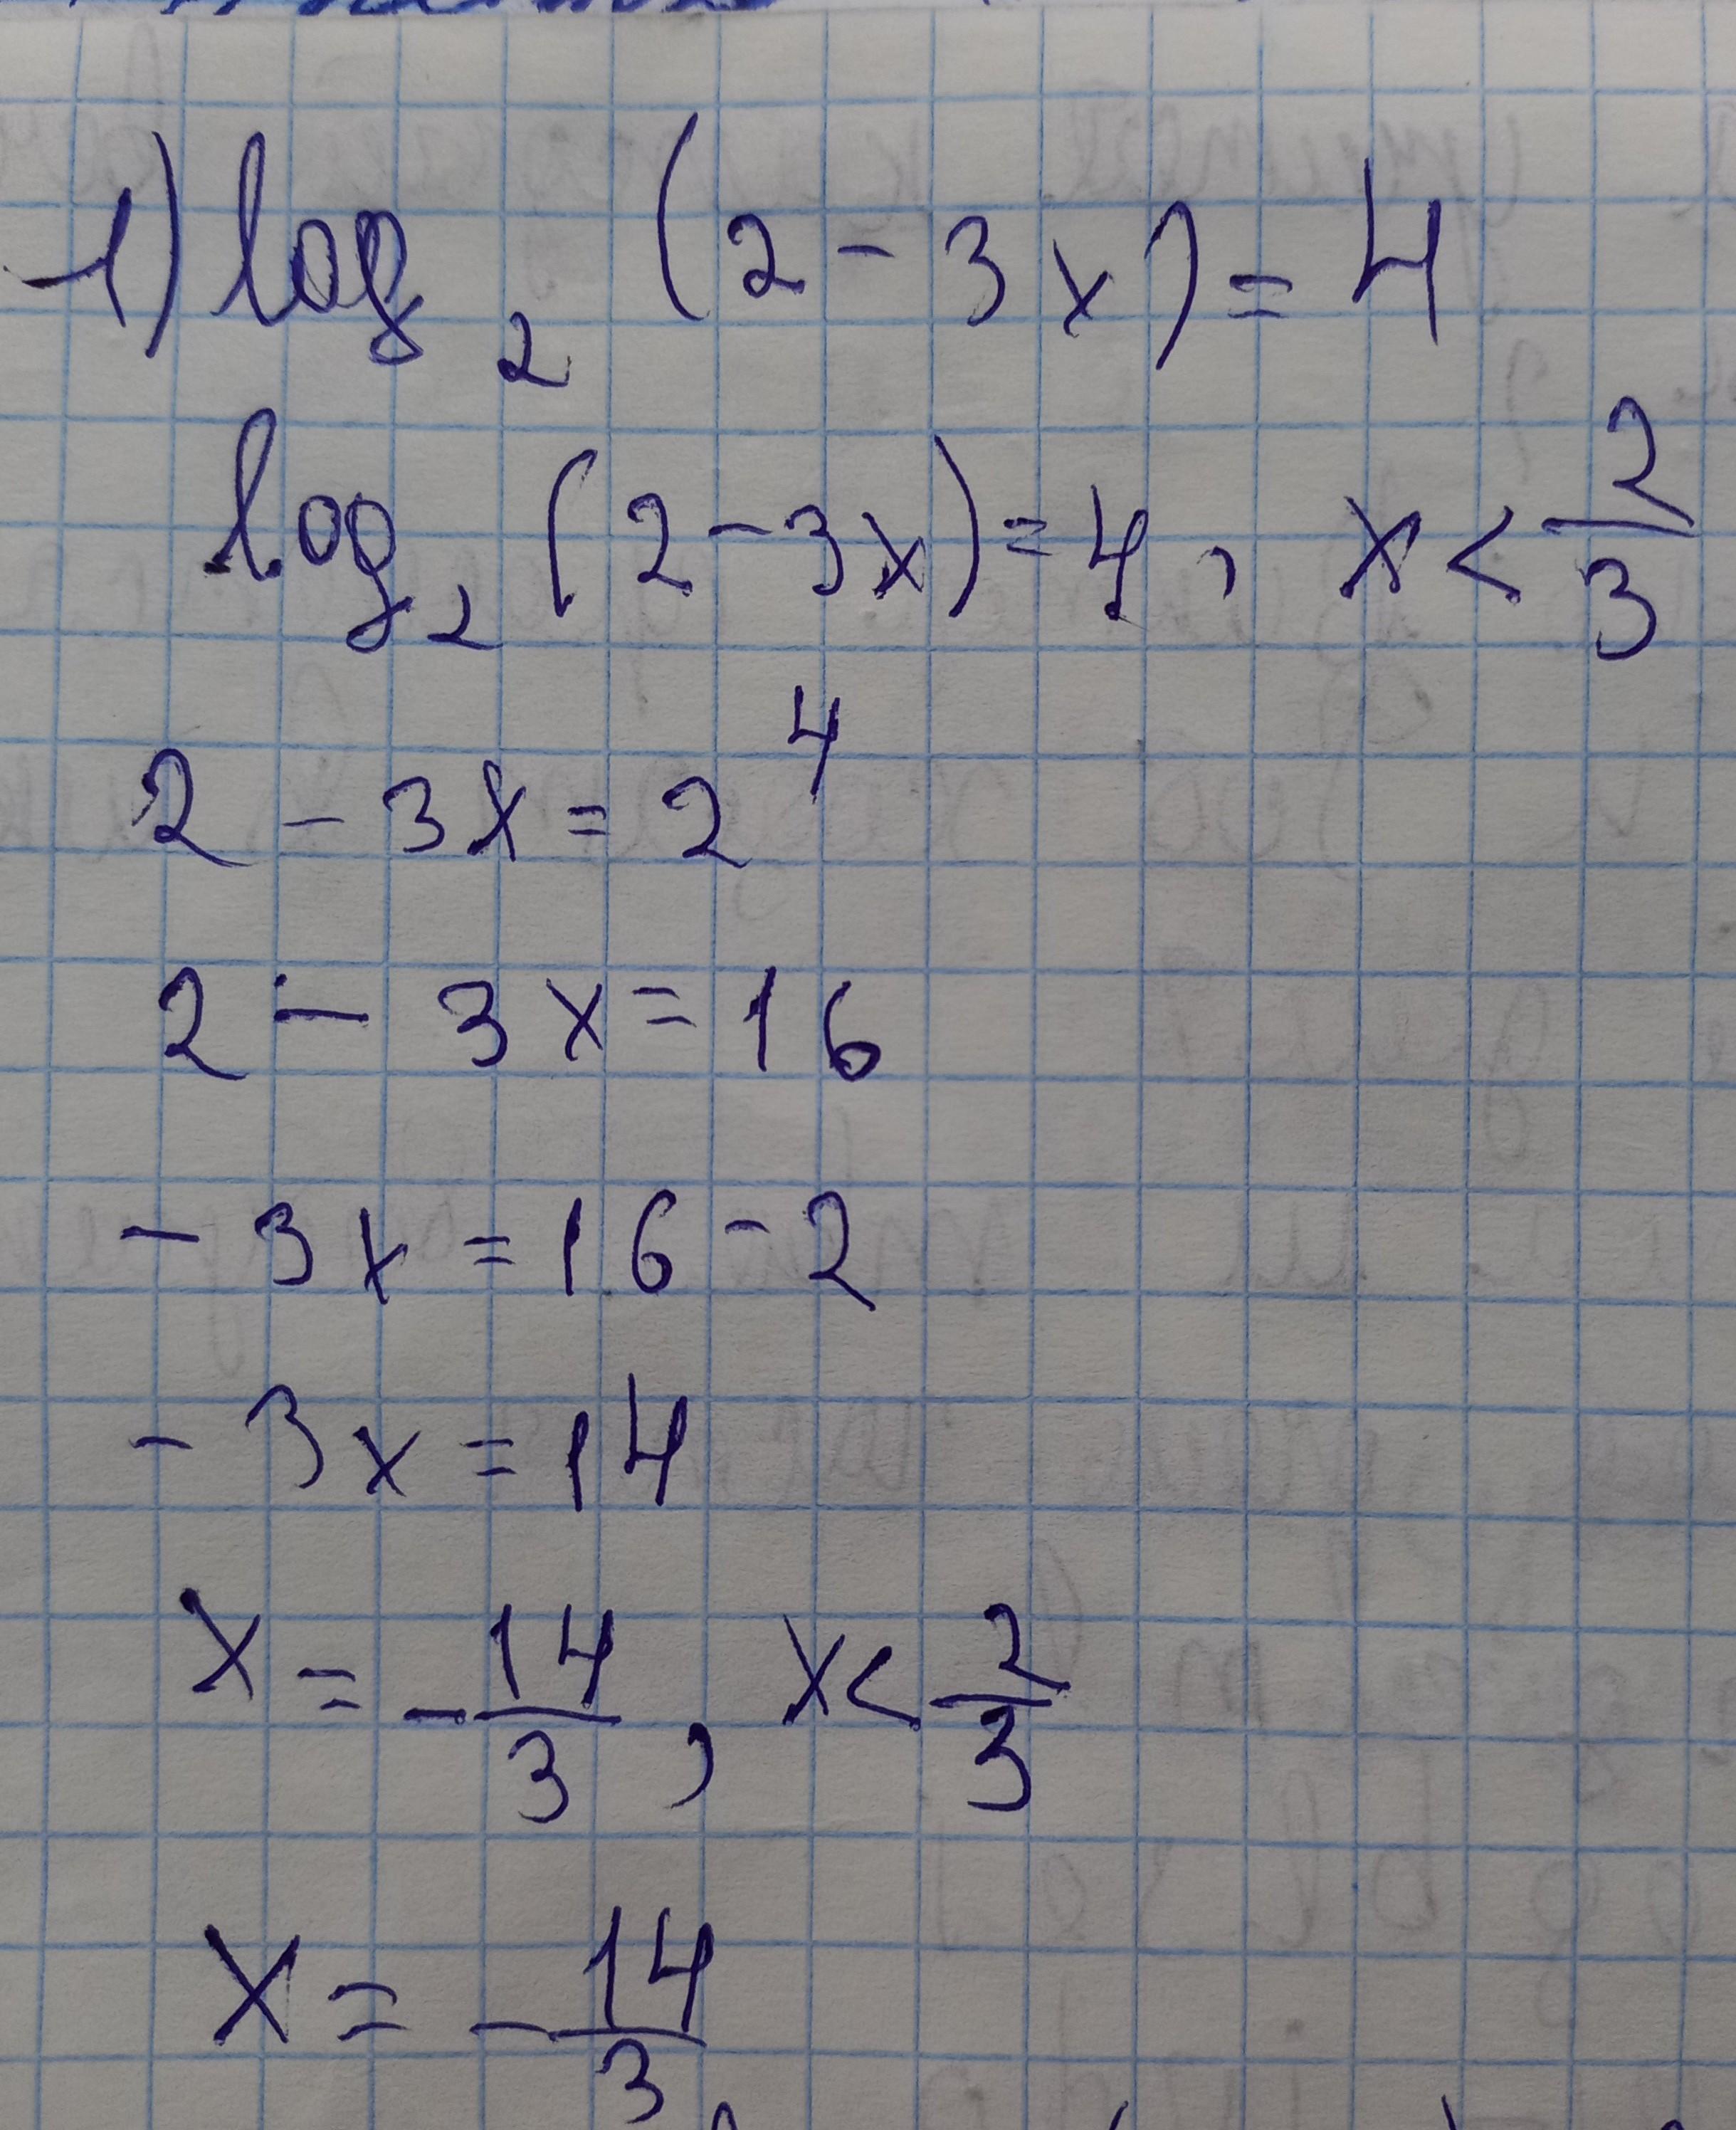 1) log₂ (2 - 3x) = 4
log₂ (2 - 3x) = 4, x < 2/3
2 - 3x = 2⁴
2 - 3x = 16
- 3x = 16 - 2
- 3x = 14
x = - 14/3, x < 2/3
x = - 14/3